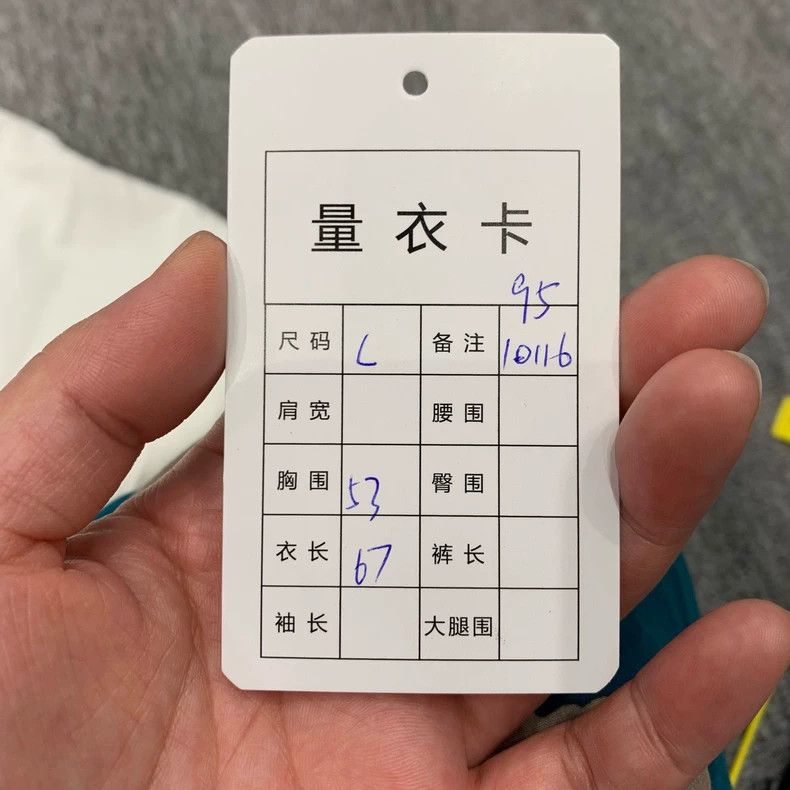 量衣卡
95
尺码 L 备注 10116
肩宽 腰围
胸围 53 臀围
衣长 67 裤长
袖长 大腿围